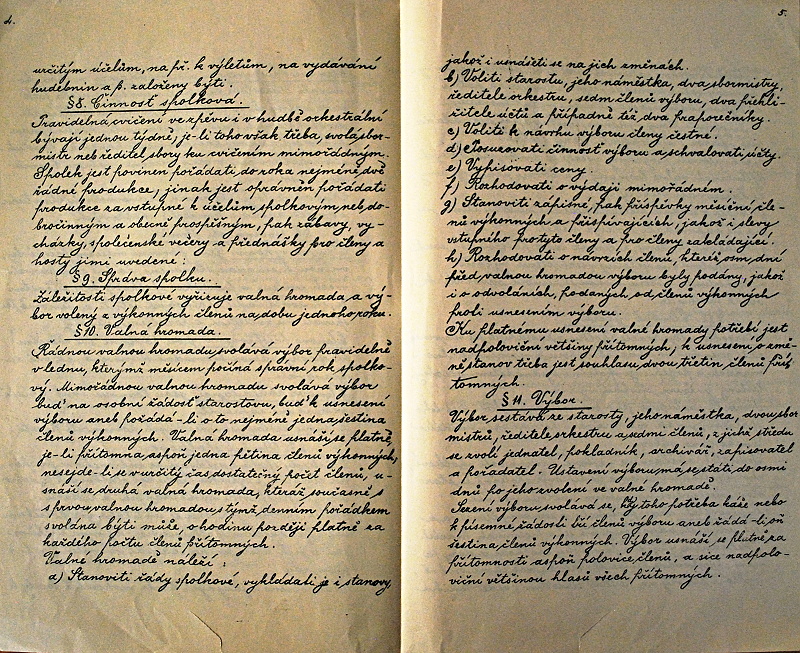 4.
určitým účelům, na př. k výletům, na vydávání
hudebnin a p. založeny býti.
§ 8. Činnost spolková.
Pravidelná cvičení ve zpěvu i v hudbě orkestrální
bývají jednou týdně, je-li toho však třeba, svolá sbor-
mistr neb ředitel sbory ku cvičením mimořádným.
Spolek jest povinen pořádati do roka nejméně dvě
řádné produkce, jinak jest oprávněn pořádati
produkce za vstupné k účelům spolkovým, neb do-
bročinným a obecně prospěšným, pak zábavy, vy-
cházky, společenské večery a přednášky pro členy a
hosty jimi uvedené:
§ 9. Správa spolku.
Záležitosti spolkové vyřizuje valná hromada, a vý-
bor volený z výkonných členů na dobu jednoho roku.
§ 10. Valná hromada.
Řádnou valnou hromadu svolává výbor pravidelně
v lednu, kterýmž měsícem počíná správní rok spolko-
vý. Mimořádnou valnou hromadu svolává výbor
buď na osobní žádost starostovu, buď k usnesení
výboru aneb požádá-li o to nejméně jedna šestina
členů výkonných. Valná hromada usnáší se platně,
je-li přítomna aspoň jedna pětina členů výkonných,
nesejde-li se v určitý čas dostatečný počet členů, u-
snáší se druhá valná hromada, kteráž současně s
prvou valnou hromadou s týmž denním pořádkem
svolána býti může, o hodinu později platně za
každého počtu členů přítomných.
Valné hromadě náleží:
a) Stanoviti řády spolkové, vykládati je i stanovy,
5.
jakož i usnášeti se na jich změnách.
b) Voliti starostu, jeho náměstka, dva sbormistry,
ředitele orkestru, sedm členů výboru, dva přehlí-
žitele účtů a případně též dva praporečníky.
c) Voliti k návrhu výboru členy čestné.
d) Posuzovati činnost výboru a schvalovati účty.
e) Vypisovati ceny.
f) Rozhodovati o výdaji mimořádném.
g) Stanoviti zápisné, pak příspěvky měsíční čle-
nů výkonných a přispívajících, jakož i slevy
vstupného pro tyto členy a pro členy zakládající.
h) Rozhodovati o návrzích členů, které osm dní
před valnou hromadou výboru byly podány, jakož
i o odvoláních, podaných od členů výkonných
proti usnesením výboru.
Ku platnému usnesení valné hromady potřebí jest
nadpoloviční většiny přítomných, k usnesení o změ-
ně stanov třeba jest souhlasu dvou třetin členů pří-
tomných.
§ 11. Výbor.
Výbor sestává ze starosty, jeho náměstka, dvou sbor-
mistrů, ředitele orkestru a sedmi členů, z jichž středu
se zvolí jednatel, pokladník, archivář, zapisovatel
a pořadatel. Ustavení výboru má se státi do osmi
dnů po jeho zvolení ve valné hromadě.
Sezení výboru svolává se, kdy toho potřeba káže nebo
k písemné žádosti tří členů výboru aneb žádá-li o ň
šestina členů výkonných. Výbor usnáší se platně za
přítomnosti aspoň polovice členů, a sice nadpolo-
viční většinou hlasů všech přítomných.